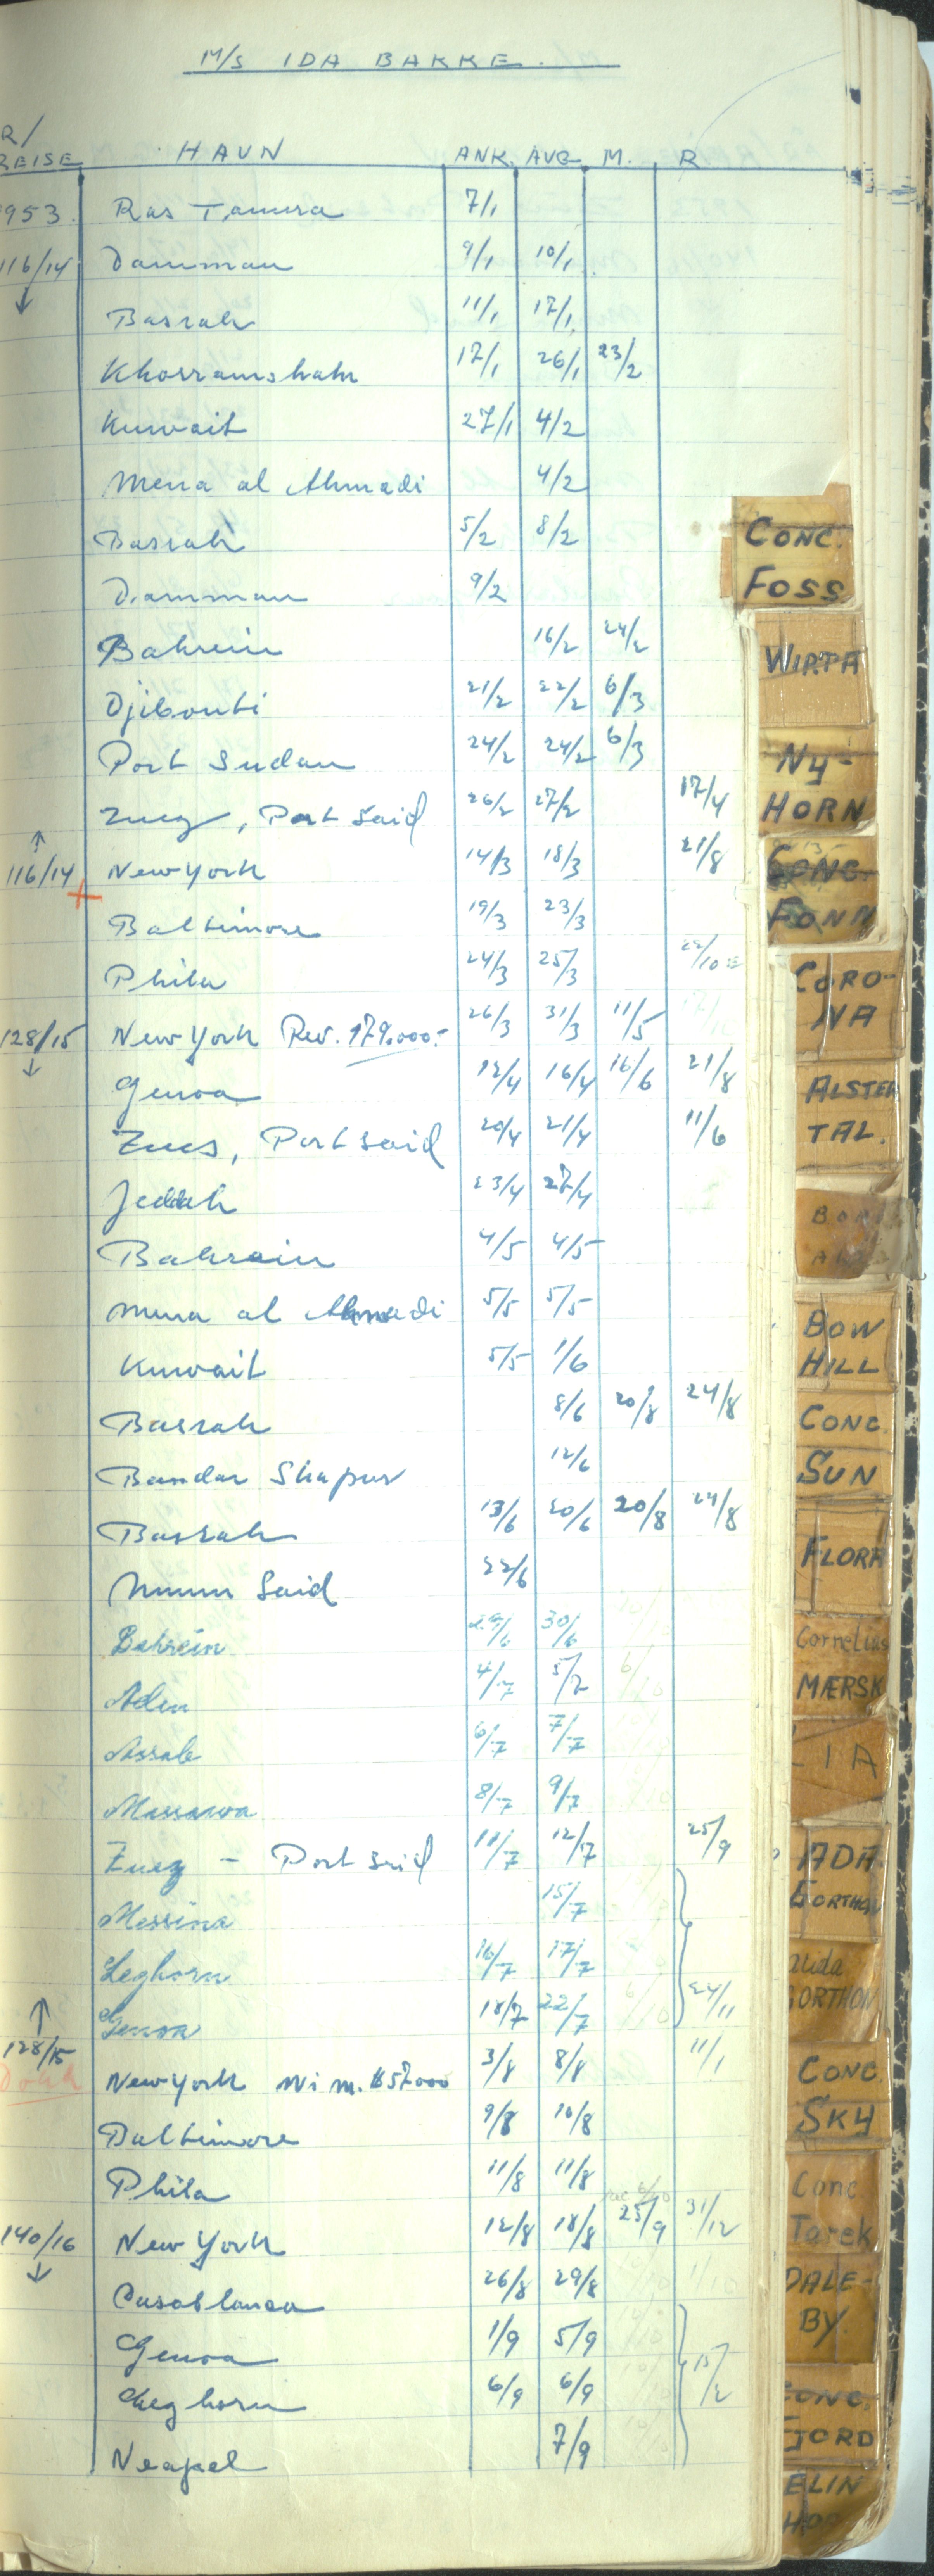 M/S IDA BAKKE.
R/
REISE HAVN ANK. AVG. M. R
1953. Ras Tanura 7/1
116/14 Damman 9/1 10/1
↓ Basrah 11/1 17/1
Khorramshahr 17/1 26/1 23/2
Kuwait 27/1 4/2
Mena al Ahmadi 4/2
Basrah 5/2 8/2
Damman 9/2
Bahrein 16/2 24/2
Djibouti 21/2 22/2 6/3
Port Sudan 24/2 24/2 6/3
Zuez, Port Said 26/2 27/2 17/4
↑
116/14 New York 14/3 18/3 21/8
Baltimore 19/3 23/3
Phila 24/3 25/3
128/15 New York Rev. 179.000.- 26/3 31/3 11/5
↓ Genoa 12/4 16/4 16/6 21/8
Zues, Port Said 20/4 21/4 11/6
Jeddah 23/4 27/4
Bahrein 4/5 4/5
Mena al Ahmadi 5/5 5/5
Kuwait 5/5 1/6
Basrah 8/6 20/8 24/8
Bandar Shapur 12/6
Basrah 13/6 20/6 20/8 24/8
Umm Said 22/6
Bahrein 30/6
Aden 4/7 5/7
Assab 6/7 7/7
Massawa 8/7 9/7
Zuez - Port Said 11/7 12/7 25/9
Messina 15/7
Leghorn 16/7 17/7
↑ Genoa 18/7 22/7 24/11
128/15
New York m. $57000 3/8 8/8 11/1
Baltimore 9/8 10/8
Phila 11/8 11/8
140/16 New York 12/8 18/8 25/9 31/12
↓ Casablanca 26/8 29/8
Genoa 1/9 5/9
Leghorn 6/9 6/9 15/2
Neapel 7/9
CONC.
FOSS
WIRTA
NY-
HORN
CONC.
FONN
CORO-
NA
ALSTER
TAL.
BOW
HILL
CONC.
SUN
FLORA
Cornelius
MÆRSK
LIA
ADA
GORTHON
Alida
GORTHON
CONC.
SKY
Conc.
Tarek
DALE-
BY.
CONC.
FJORD
ELIN